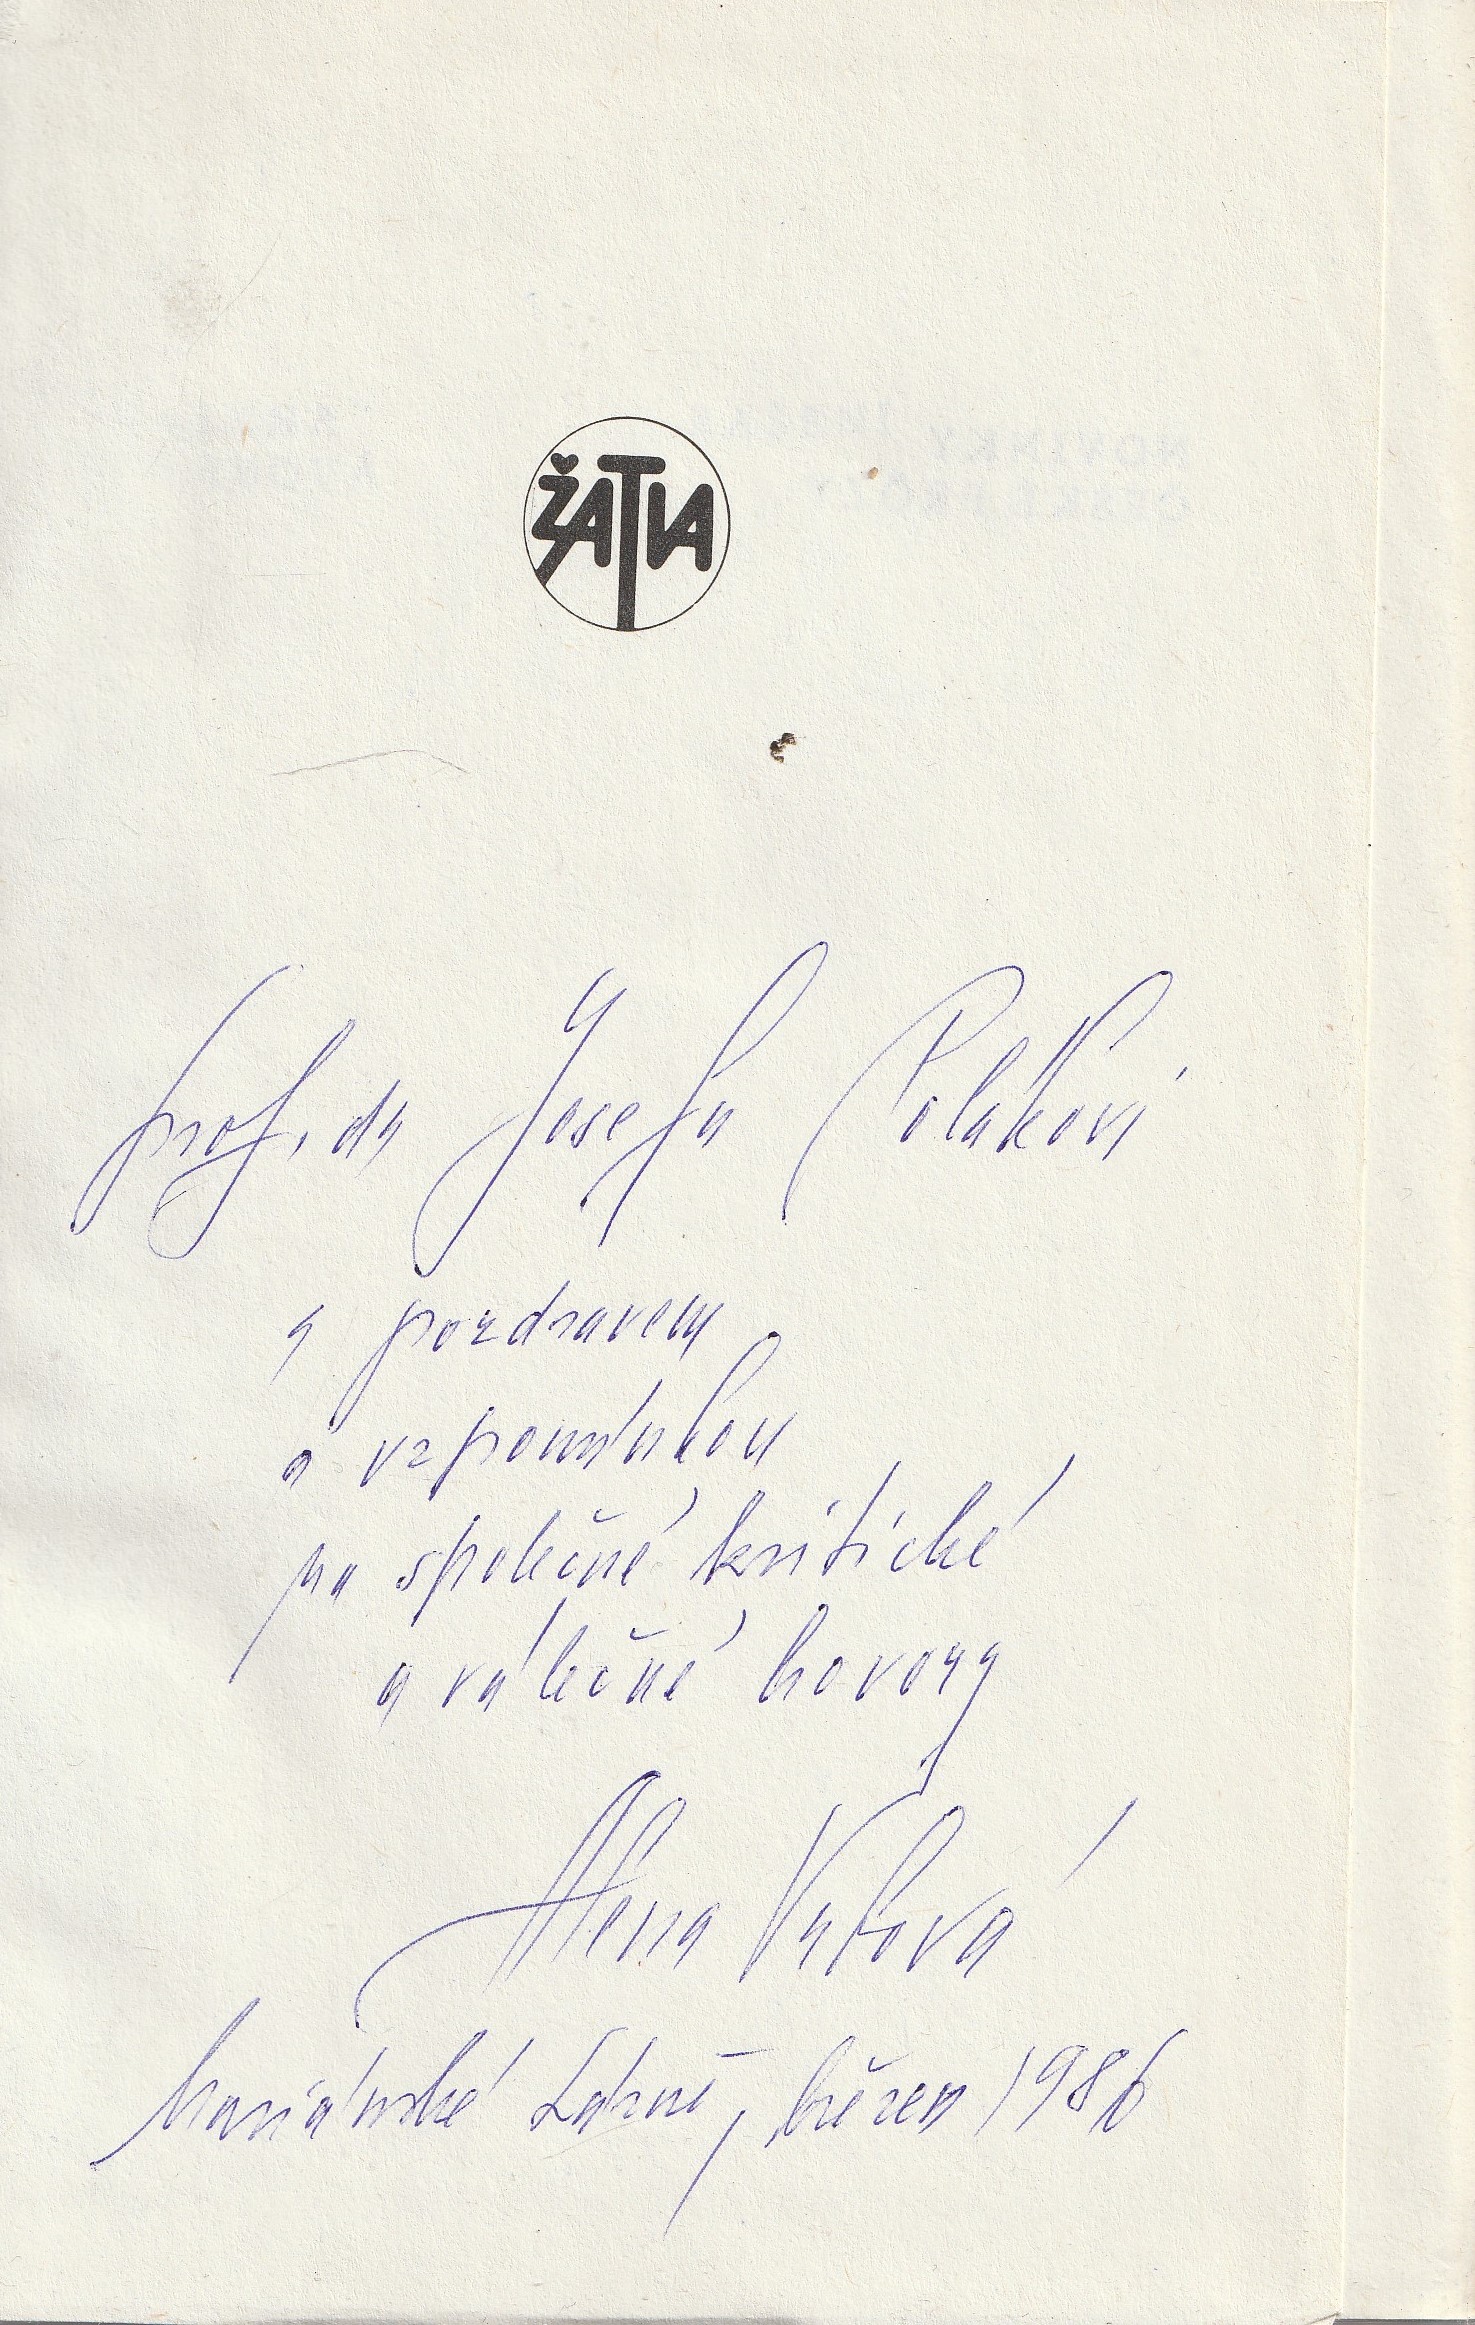 ŽATVA
Prof. dr Josefu Polákovi
s pozdravem
a vzpomínkou
na společné kritické
a válečné hovory
Alena Vrbová
Mariánské Lázně, březen 1986